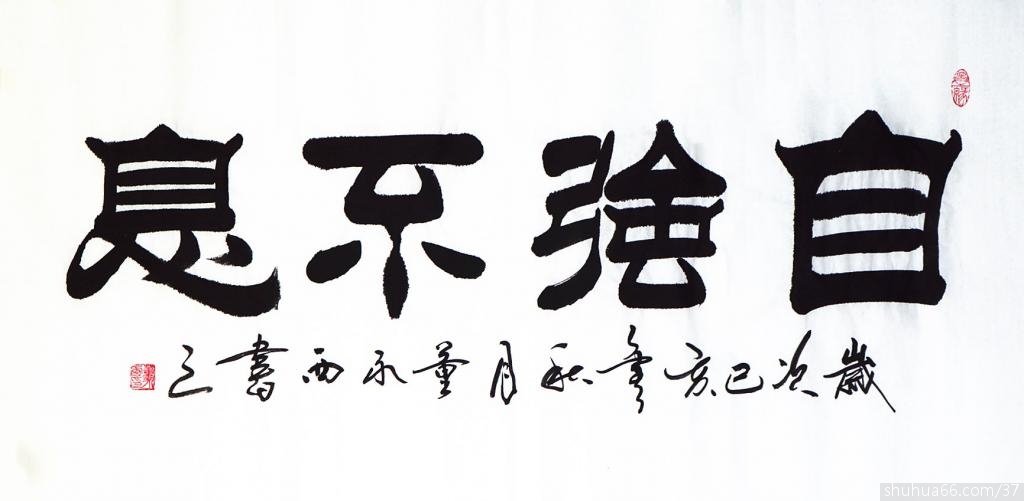 自強不息
歲次己亥年秋月董永西書之
shuhua66.com/37